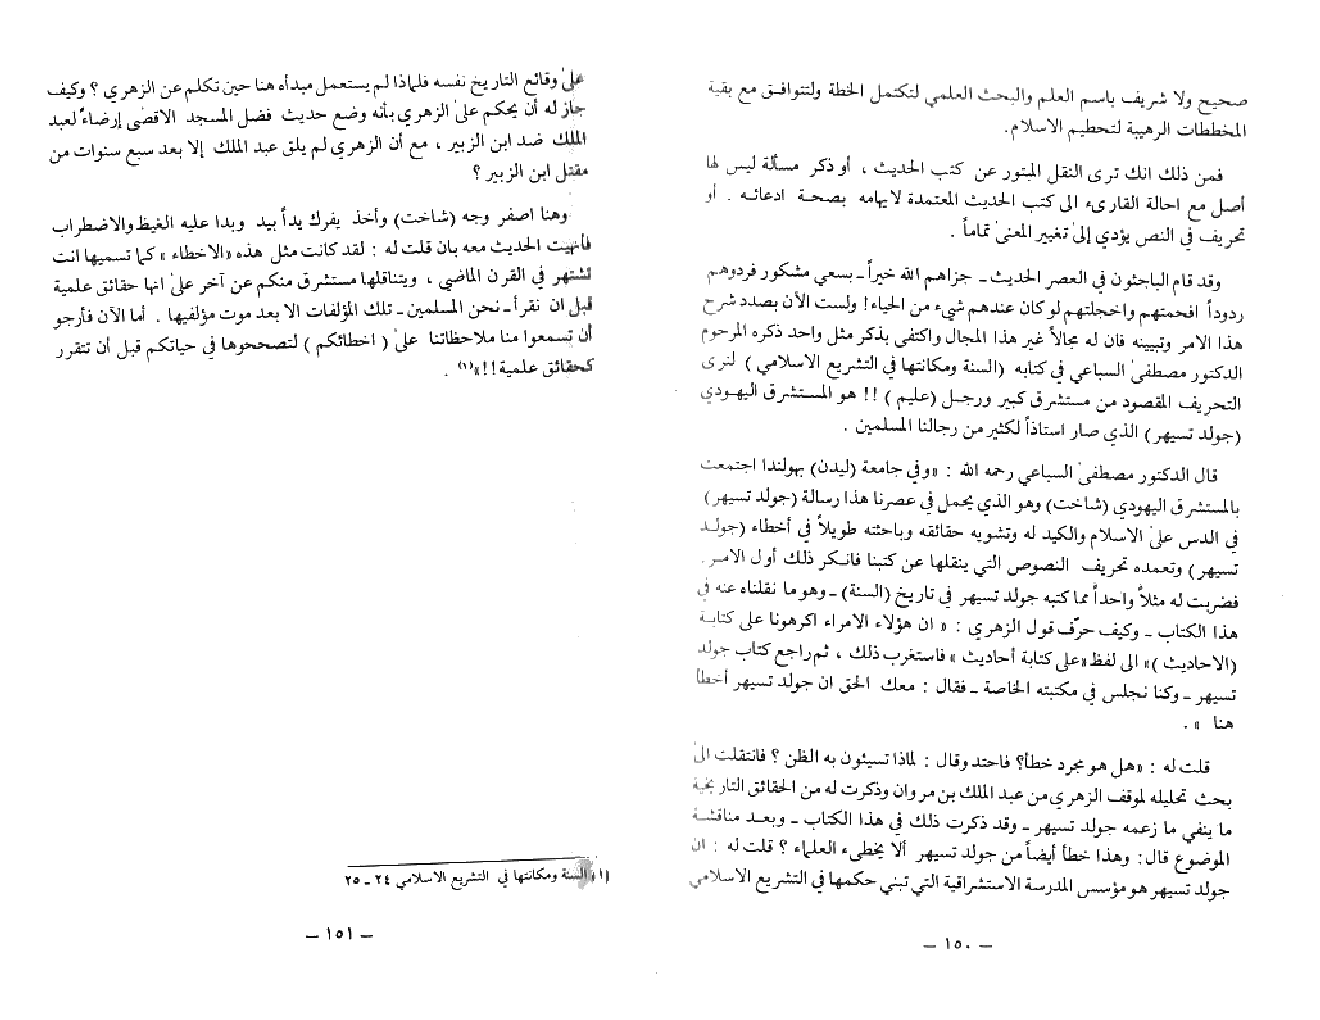 صحيح ولا شريف باسم العلم والبحث العلمي لتكتمل الخطة ولتتوافق مع بقية
المخططات الرهيبة لتحطيم الاسلام.
فمن ذلك انك ترى النقل المبتور عن كتب الحديث ، أو ذكر مسألة ليس لها
أصل مع احالة القارىء الى كتب الحديث المعتمدة لايهامه بصحة ادعائه . أو
تحريف في النص يؤدي إلى تغيير المعنى تماماً .
وقد قام الباحثون في العصر الحديث ـ جزاهم الله خيراً ـ بسعي مشكور فردوهم
ردوداً افحمتهم واخجلتهم لو كان عندهم شيء من الحياء! ولست الأن بصدد شرح
هذا الامر وتبيينه فان له مجالاً غير هذا المجال واكتفي بذكر مثل واحد ذكره المرحوم
الدكتور مصطفى السباعي في كتابه (السنة ومكانتها في التشريع الاسلامي ) لنرى
التحريف المقصود من مستشرق كبير ورجل (عليم ) !! هو المستشرق اليهودي
(جولد تسيهر) الذي صار استاذاً لكثير من رجالنا المسلمين .
قال الدكتور مصطفى السباعي رحمه الله : «وفي جامعة (ليدن) بهولندا اجتمعت
بالمستشرق اليهودي (شاخت) وهو الذي يحمل في عصرنا هذا رسالة (جولد تسيهر)
في الدس على الاسلام والكيد له وتشويه حقائقه وباحثته طويلاً في أخطاء (جولد
تسيهر) وتعمده تحريف النصوص التي ينقلها عن كتبنا فانكر ذلك أول الامر.
فضربت له مثلاً واحداً مما كتبه جولد تسيهر في تاريخ (السنة) ـ وهو ما نقلناه عنه في
هذا الكتاب ـ وكيف حرّف قول الزهري : « ان هؤلاء الامراء اكرهونا على كتابة
(الاحاديث )» الى لفظ «على كتابة أحاديث » فاستغرب ذلك ، ثم راجع كتاب جولد
تسيهر ـ وكنا نجلس في مكتبته الخاصة ـ فقال : معك الحق ان جولد تسيهر أخطأ
هنا » .
قلت له : «هل هو مجرد خطأ؟ فاحتد وقال : لماذا تسيئون به الظن ؟ فانتقلت الى
بحث تحليله لموقف الزهري من عبد الملك بن مروان وذكرت له من الحقائق التاريخية
ما ينفي ما زعمه جولد تسيهر ـ وقد ذكرت ذلك في هذا الكتاب ـ وبعد مناقشة
الموضوع قال: وهذا خطأ أيضاً من جولد تسيهر ألا يخطىء العلماء ؟ قلت له : ان
جولد تسيهر هو مؤسس المدرسة الاستشراقية التي تبني حكمها في التشريع الاسلامي
ـ ١٥٠ ـ
على وقائع التاريخ نفسه فلماذا لم يستعمل مبدأه هنا حين تكلم عن الزهري ؟ وكيف
جاز له أن يحكم على الزهري بأنه وضع حديث فضل المسجد الاقصى إرضاءً لعبد
الملك ضد ابن الزبير ، مع أن الزهري لم يلق عبد الملك إلا بعد سبع سنوات من
مقتل ابن الزبير ؟
وهنا اصفر وجه (شاخت) وأخذ يفرك يداً بيد وبدا عليه الغيظ والاضطراب
فأنهيت الحديث معه بان قلت له : لقد كانت مثل هذه «الاخطاء » كما تسميها انت
تشتهر في القرن الماضي ، ويتناقلها مستشرق منكم عن آخر على انها حقائق علمية
قبل ان نقرأ ـ نحن المسلمين ـ تلك المؤلفات الا بعد موت مؤلفيها . أما الآن فأرجو
أن تسمعوا منا ملاحظاتنا على ( اخطائكم ) لتصححوها في حياتكم قبل أن تتقرر
كحقائق علمية !!»(١) .
(١) السنة ومكانتها في التشريع الاسلامي ٢٤ ـ ٢٥
ـ ١٥١ ـ